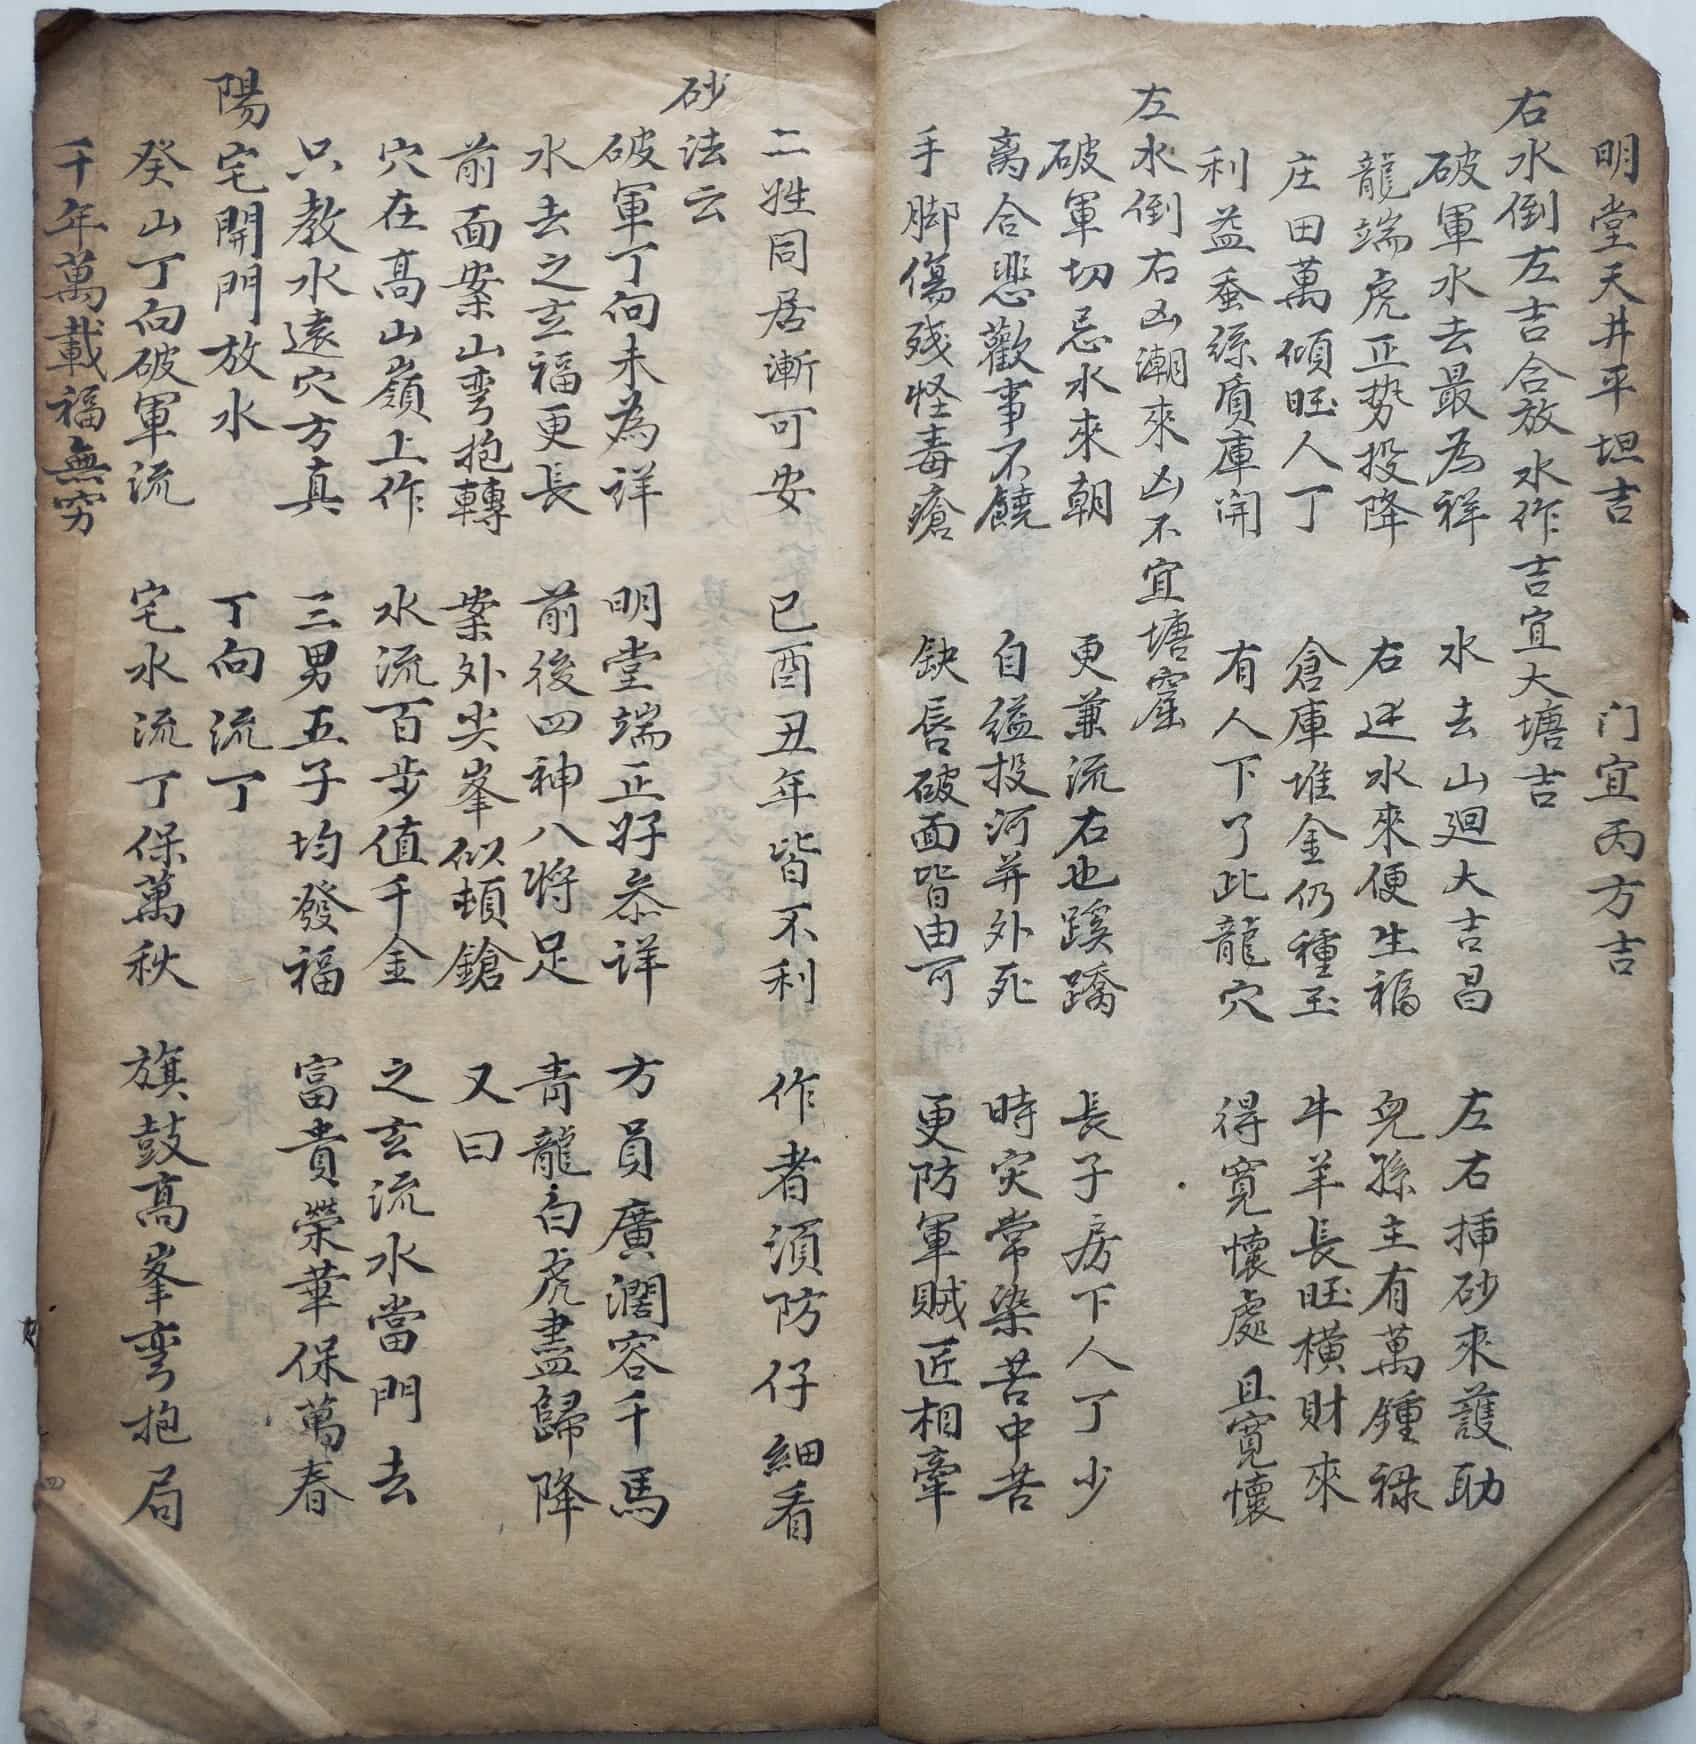 明堂天井平坦吉　门宜丙方吉
右水倒左吉合放水作吉宜大塘吉
破軍水去最为祥　水去山廻大吉昌　左右挿砂來護助
龍端虎正势投降　右迷水來便生福　兒孫主有萬鍾禄
庄田萬傾旺人丁　倉庫堆金仍種玉　牛羊長旺橫財來
利益蚕絲質庫開　有人下了此龍穴　得寬懷處且寬懷
左水倒右凶潮來凶不宜塘窟
破軍切忌水來朝　更兼流右也蹊蹺　長子房下人丁少
离合悲歡事不饒　自縊投河并外死　時灾常染苦中苦
手脚傷殘怪毒瘡　缺唇破面皆由可　更防軍賊匠相牽
二姓同居漸可安　巳酉丑年皆不利　作者須防仔細看
砂法云
破軍丁向未為詳　明堂端正好叅詳　方員廣濶容千馬
水去之玄福更長　前後四神八將足　青龍白虎盡歸降
前面案山弯抱轉　案外尖峯似頓鎗　又曰
穴在高山嶺上作　水流百步值千金　之玄流水當門去
只教水遠穴方真　三男五子均發福　富貴榮華保萬春
陽宅開門放水　丁向流丁
癸山丁向破軍流　宅水流丁保萬秋　旗鼓高峯弯抱局
千年萬載福無穷